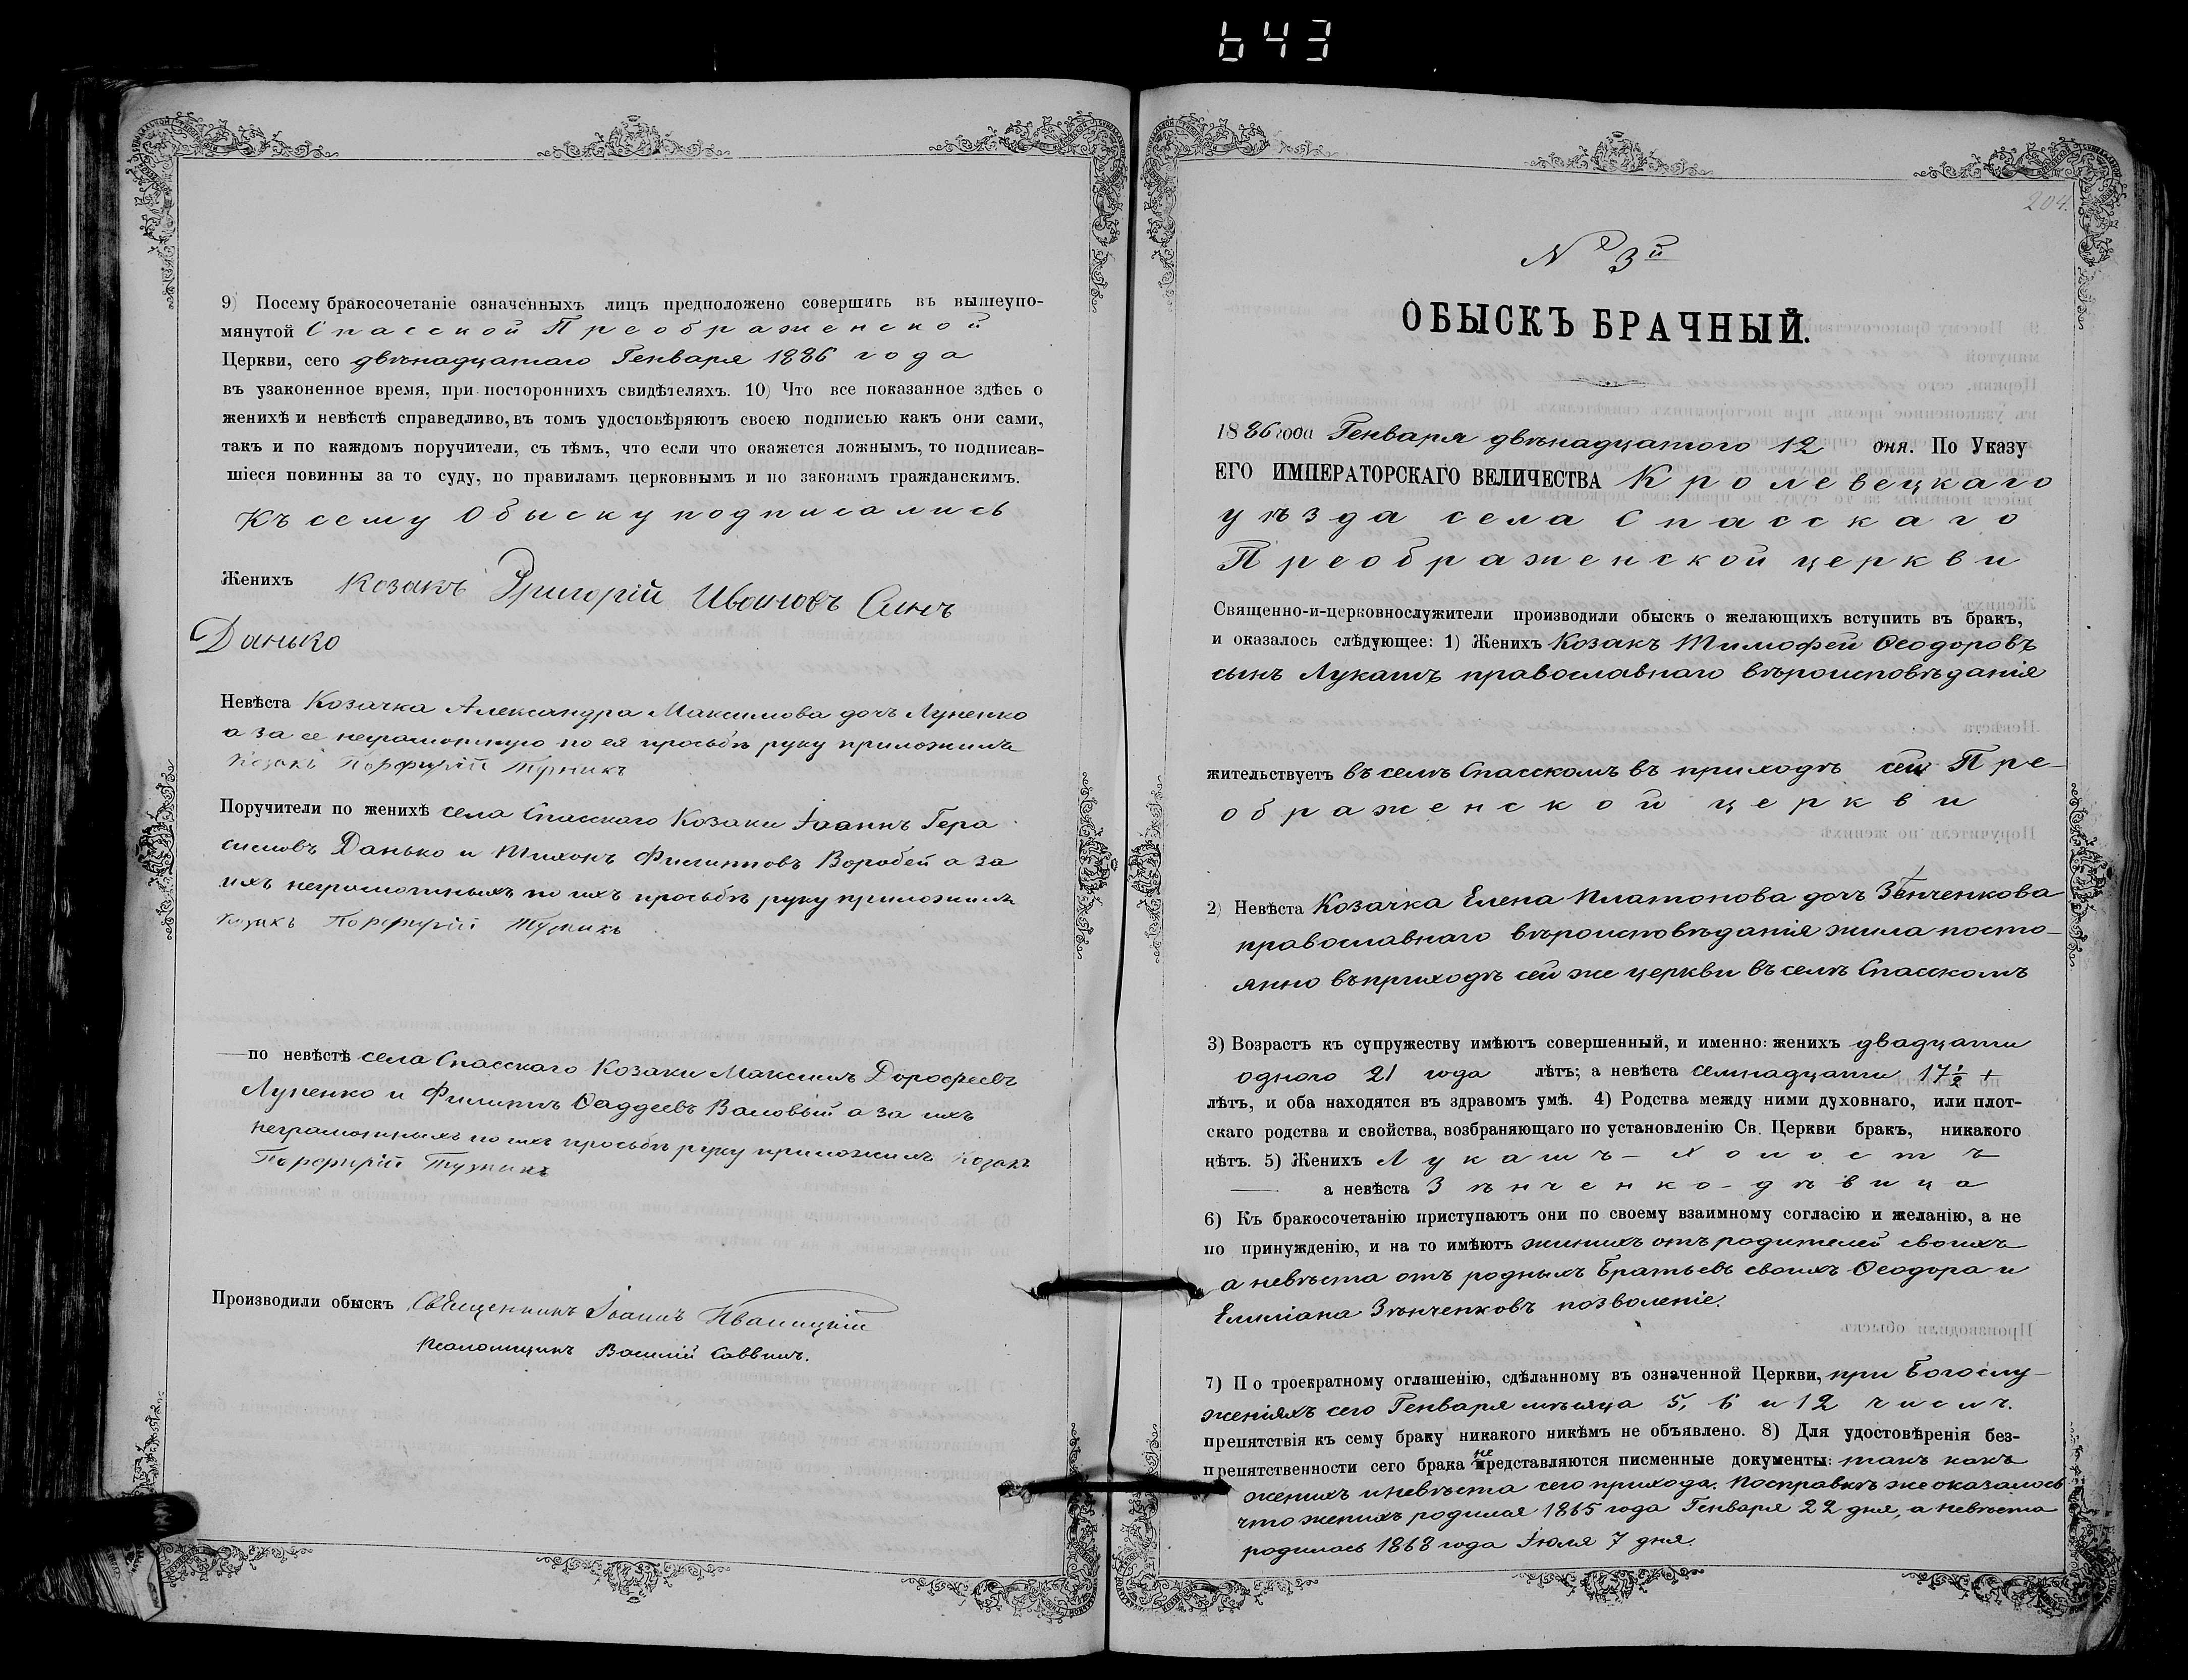 643
9) Посему бракосочетаніе означенныхъ лицъ предположено совершить въ вышеупо-
мянутой Спасской Преображенской
Церкви, сего двѣнадцатаго Генваря 1886 года
въ узаконенное время, при постороннихъ свидѣтеляхъ. 10) Что все показанное здѣсь о
женихѣ и невѣстѣ справедливо, въ томъ удостовѣряютъ своею подписью какъ они сами,
такъ и по каждомъ поручители, съ тѣмъ, что если что окажется ложнымъ, то подписав-
шіеся повинны за то суду, по правиламъ церковнымъ и по законамъ гражданскимъ.
Къ сему Обыску подписались
Женихъ Козакъ Григорій Ивановъ Синъ
Данько
Невѣста Козачка Александра Максимова дочъ Луненко
а за ее неграмотную по ея просьбѣ руку приложилъ
Козакъ Порфирій
Поручители по женихѣ села Спасскаго Козаки Іоаннъ Гера
симовъ Данько и Тихонъ Филипповъ Воробей а за
ихъ неграмотныхъ по ихъ просьбѣ руку приложилъ
Козакъ Порфирій
—по невѣстѣ села Спасскаго Козаки Максимъ Дорофеевъ
Луненко и Филиппъ Ѳаддеевъ Валовый а за ихъ
неграмотныхъ по ихъ просьбѣ руку приложилъ Козакъ
Порфирій
Производили обыскъ Священникъ Іоаннъ Иваницкій
Псаломщикъ Василій Саввичъ.
204.
№ 3й
ОБЫСКЪ БРАЧНЫЙ.
1886 года Генваря двѣнадцатого 12 дня. По Указу
ЕГО ИМПЕРАТОРСКАГО ВЕЛИЧЕСТВА Кролевецкаго
уѣзда села Спасскаго
Преображенской церкви
Священно-и-церковнослужители производили обыскъ о желающихъ вступить въ бракъ,
и оказалось слѣдующее: 1) Женихъ Козакъ Тимофей Ѳеодоровъ
сынъ Лукашъ православнаго вѣроисповѣданія
жительствуетъ въ селѣ Спасскомъ въ приходѣ сей Пре-
ображенской церкви
2) Невѣста Козачка Елена Платонова дочъ Зѣнченкова
православнаго вѣроисповѣданія жила посто-
янно въ приходѣ сей же церкви въ селѣ Спасскомъ
3) Возрастъ къ супружеству имѣютъ совершенный, и именно: женихъ двадцати
одного 21 года лѣтъ; а невѣста семнадцати 17 ½ +
лѣтъ, и оба находятся въ здравомъ умѣ. 4) Родства между ними духовнаго, или плот-
скаго родства и свойства, возбраняющаго по установленію Св. Церкви бракъ, никакого
нѣтъ. 5) Женихъ Лукашъ - холостъ
— а невѣста Зѣнченко - дѣвица
6) Къ бракосочетанію приступаютъ они по своему взаимному согласію и желанію, а не
по принужденію, и на то имѣютъ жинихъ отъ родителей своихъ
а невѣста отъ родныхъ братьевъ своихъ Ѳеодора и
Емиліана Зѣнченковъ позволеніе.
7) По троекратному оглашенію, сдѣланному въ означенной Церкви, при Богослу-
женіяхъ сего Генваря мѣсяца 5, 6 и 12 числъ.
препятствія къ сему браку никакого никѣмъ не объявлено. 8) Для удостовѣренія без-
препятственности сего брака не представляются писменные документы: такъ какъ
женихъ и невѣста сего прихода. По справкѣ же оказалось
что женихъ родился 1865 года Генваря 22 дня, а невѣста
родилась 1868 года Іюля 7 дня.